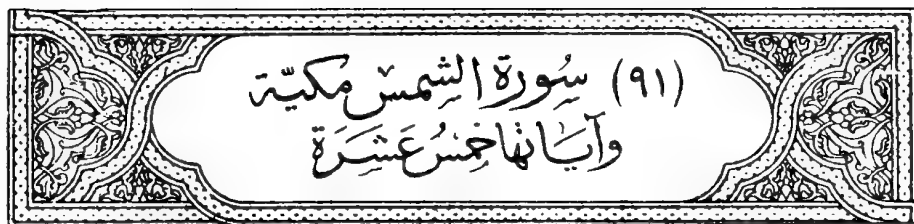 (٩١) سُورَة الشِّمسْ مكيّة
وآيَاتها خمسُ عَشَرَة